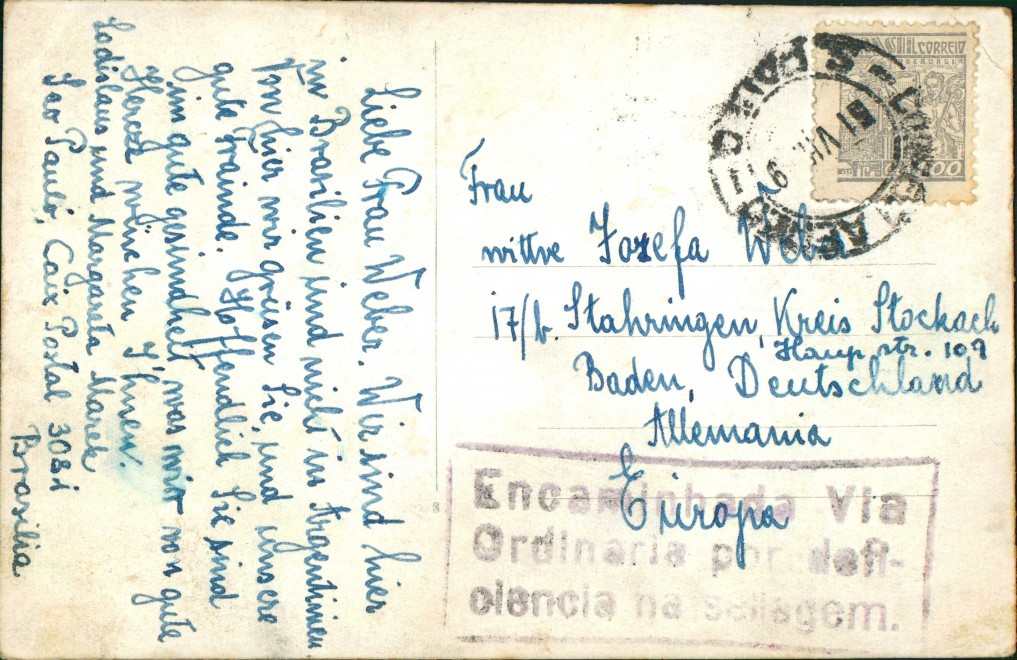 Liebe Frau Weber. Wir sind hier
in Brasilien und nicht in Argentinien
Im hier wir grüsen Sie, und unsere
gute Frainde. Hoffendlich Sie sind
im gute gesindheit, was wir von gute
Herczt wünchen I,hnen.
Ladislaus und Margareta Marek
Sao Paulo, Caix Postal 3081
Brasilia
Frau
wittve Jozefa Weber
17/b. Stahringen, Kreis Stockach
Haup str. 109
Baden, Deutschland
Allemania
Europa
CORREIO
S. PAULO
AEREO
Encaminhada Via
Ordinaria por defi-
ciencia na sellagem.
8